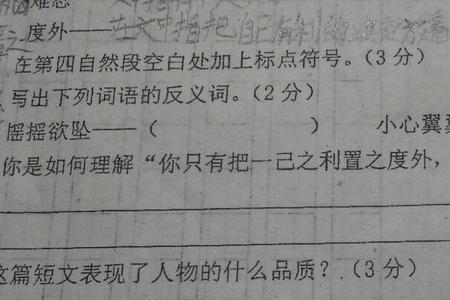 难忘
度外——在文中指把自己
在第四自然段空白处加上标点符号。(3分)
写出下列词语的反义词。(2分)
摇摇欲坠——( ) 小心翼翼
你是如何理解“你只有把一己之利置之度外,
这篇短文表现了人物的什么品质?.(3分)